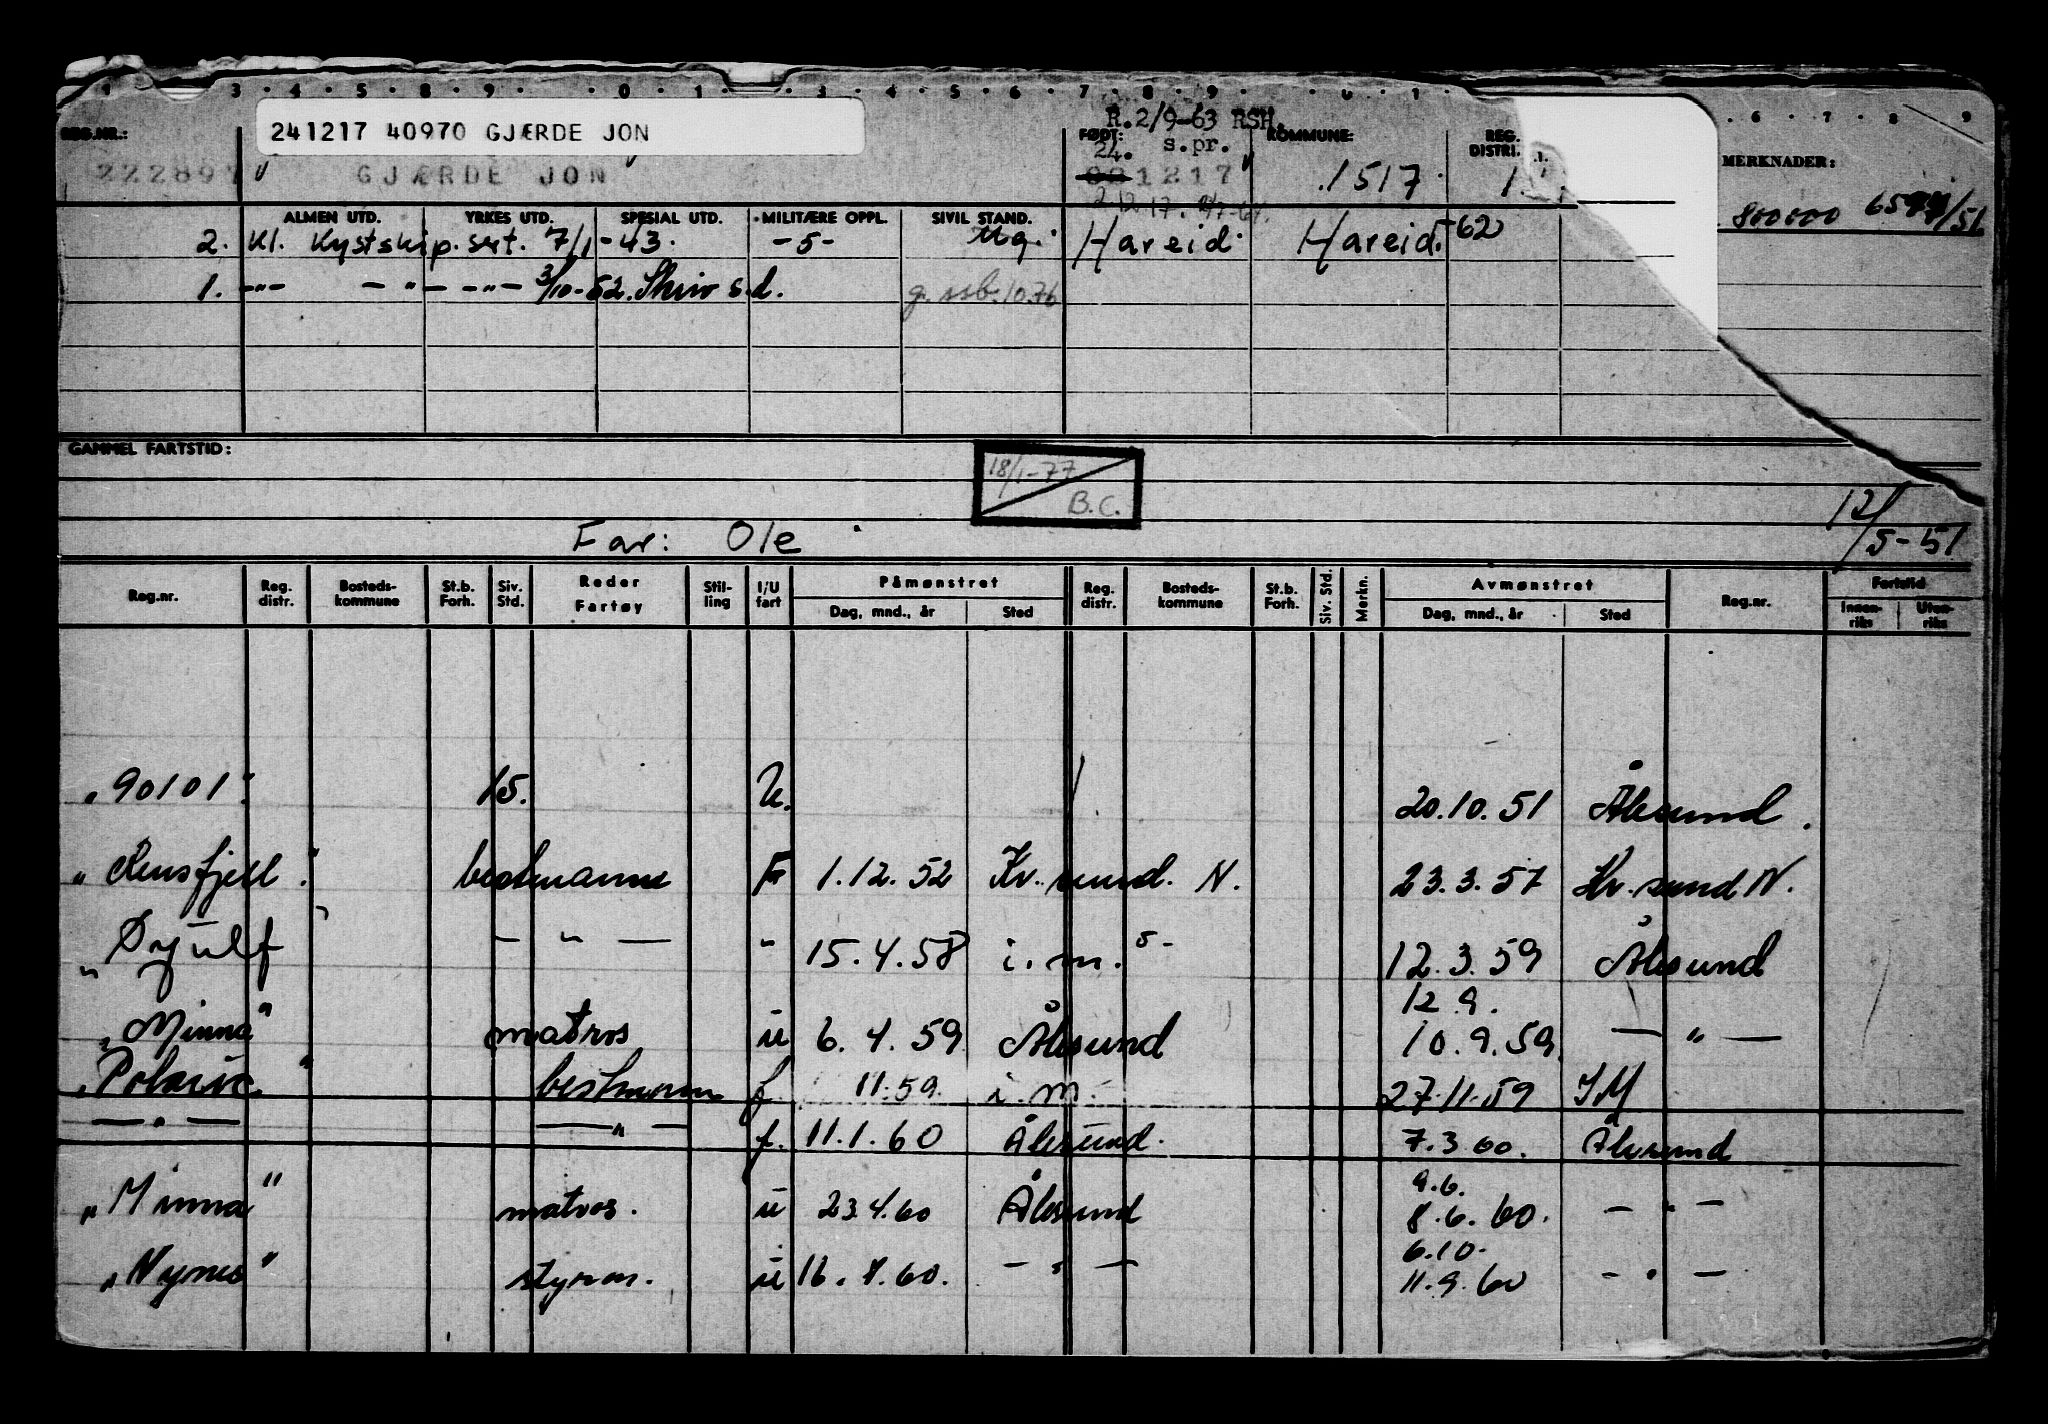 R. 2/9-63 RSH.
241217 40970 GJÆRDE JON
REG.NR.: FØDT: s.pr. KOMMUNE: REG. DISTRI. MERKNADER:
24.
222897 GJÆRDE JON 1217 1517 1
2.12.17.
800000
ALMEN UTD. YRKES UTD. SPESIAL UTD. MILITÆRE OPPL. SIVIL STAND.
2. Kl. Kystskip. sert. 7/1-43. -5- Ug. Hareid. Hareid.-62
1. -"- -"- -"- 3/10-52. Skriv s.d. g. ssb. 10.76
GAMMEL FARTSTID:
18/1-77
B.C.
Far: Ole
12/5-51
Reg.nr. Reg. distr. Bosteds-kommune St.b. Forh. Siv. Std. Reder Fartøy Stil-ling I/U fart Påmønstret Dag, mnd., år Sted Reg. distr. Bosteds-kommune St.b. Forh. Siv. Std. Merkn. Avmønstret Dag, mnd., år Sted Reg.nr. Fartstid Innen-riks Uten-riks
"90101" 15. U. 20.10.51 Ålesund.
" " bestmann F 1.12.52 Kr.sund. N. 23.3.57 Kr.sund N.
" — " — " 15.4.58 i.m. 12.3.59 Ålesund
12.9.
"Minna" matros ü 6.4.59 Ålesund 10.9.59 — " —
" " bestmann f 11.59. i.m. 27.11.59 IM
— " — — " — f. 11.1.60 Ålesund. 7.3.60. Ålesund
9.6.
"Minna" matros. ü 23.4.60 Ålesund 8.6.60. — " —
6.10.
"Nynes" styrm. ü 16.8.60. — " — 11.9.60 — " —